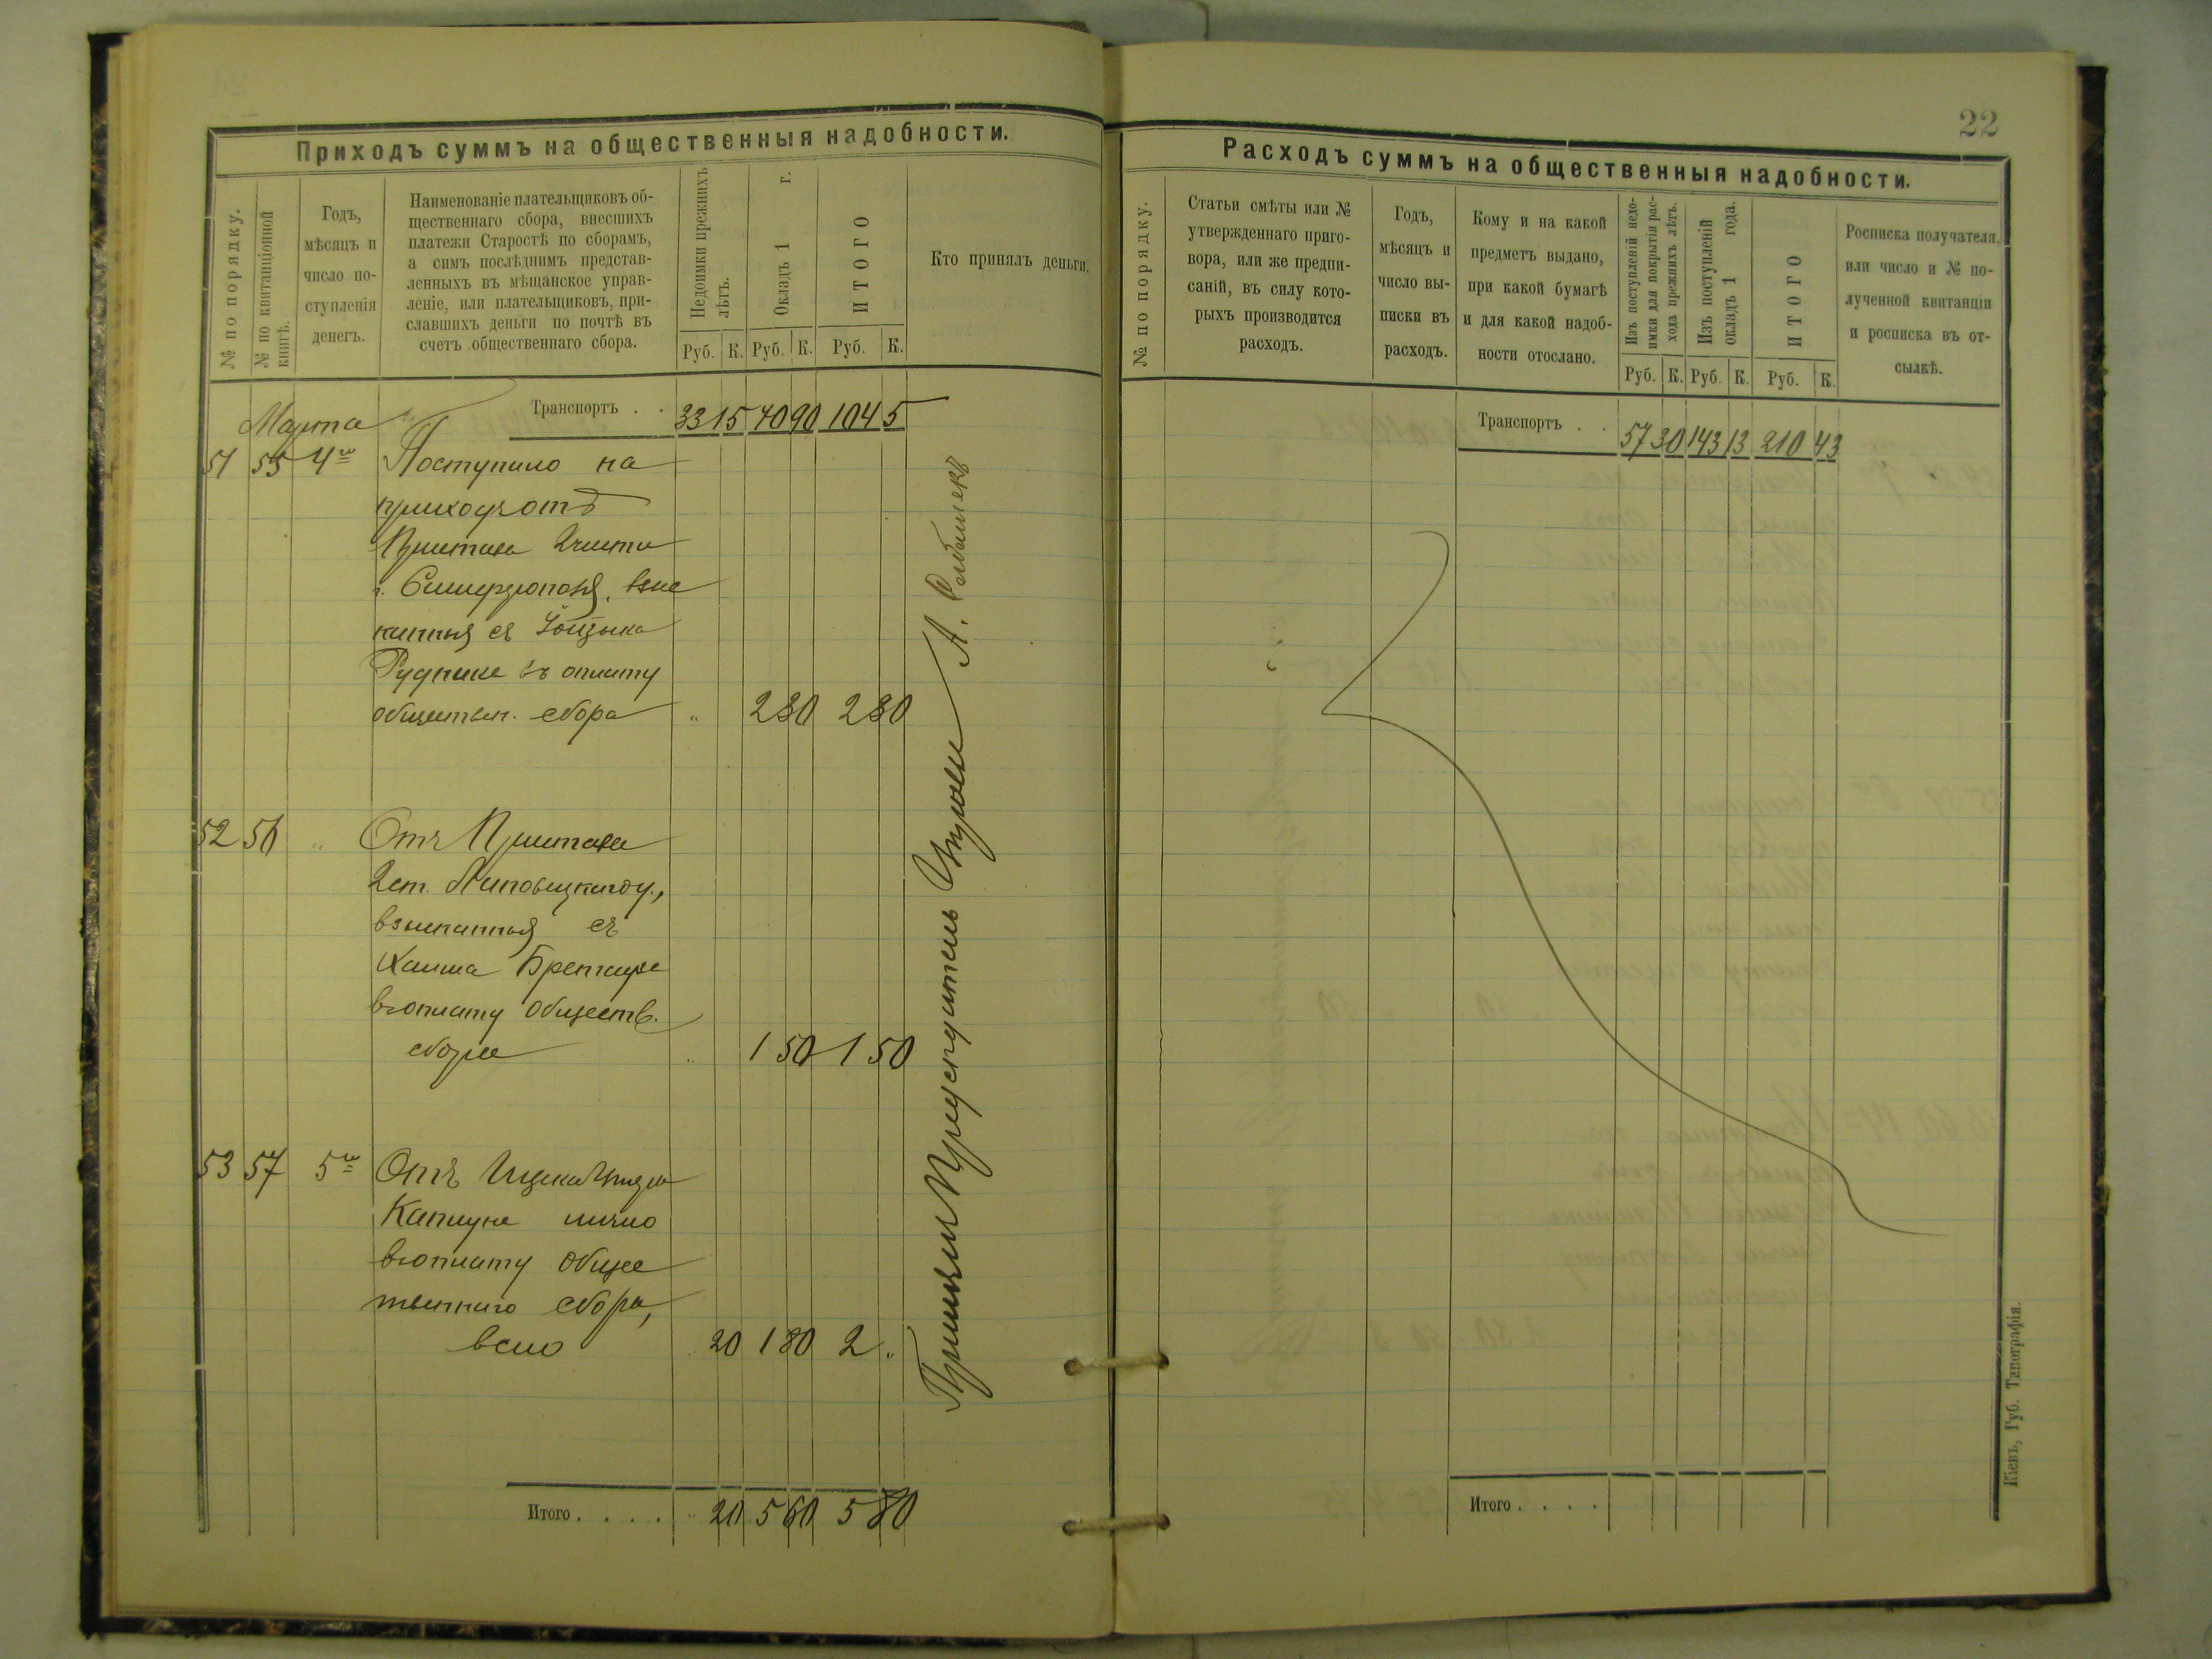 22
Приходъ суммъ на общественныя надобности.
№ по порядку.
№ по квитанціонной
книгѣ.
Годъ,
мѣсяцъ и
число по-
ступленія
денегъ.
Наименованіе плательщиковъ об-
щественнаго сбора, внесшихъ
платежи Старостѣ по сборамъ,
а симъ послѣднимъ представ-
ленныхъ въ мѣщанское управ-
леніе, или плательщиковъ, при-
славшихъ деньги по почтѣ въ
счетъ общественнаго сбора.
Недоимки прежнихъ
лѣтъ.
Окладъ 1 г.
ИТОГО
Руб. К. Руб. К. Руб. К.
Кто принялъ деньги.
Транспортъ . . 33 15 70 90 104 5
Марта
51 55 4го Поступило на
приходъ отъ
Пристава 2 части
г. Симферополя, взыс
канныя съ
въ оплату
обществен. сбора " 2 30 2 30
52 56 " Отъ Пристава
2 ст. Липовецкаго у.,
взысканныя съ
Хаима
въ оплату обществ.
сбора " 1 50 1 50
53 57 5го Отъ Ицка
лично
въ оплату обще
ственнаго сбора,
всего 20 1 80 2 "
Итого . . . . " 20 5 60 5 80
Принялъ Предсѣдатель Управы А.
Расходъ суммъ на общественныя надобности.
№ по порядку.
Статьи смѣты или №
утвержденнаго приго-
вора, или же предпи-
саній, въ силу кото-
рыхъ производится
расходъ.
Годъ,
мѣсяцъ и
число вы-
писки въ
расходъ.
Кому и на какой
предметъ выдано,
при какой бумагѣ
и для какой надоб-
ности отослано.
Изъ поступленій недо-
имки для покрытія рас-
хода прежнихъ лѣтъ.
Изъ поступленій
окладъ 1 года.
ИТОГО
Руб. К. Руб. К. Руб. К.
Росписка получателя,
или число и № по-
лученной квитанціи
и росписка въ от-
сылкѣ.
Транспортъ . . 57 30 143 13 210 43
Итого . . . .
Кіевъ, Губ. Типографія.